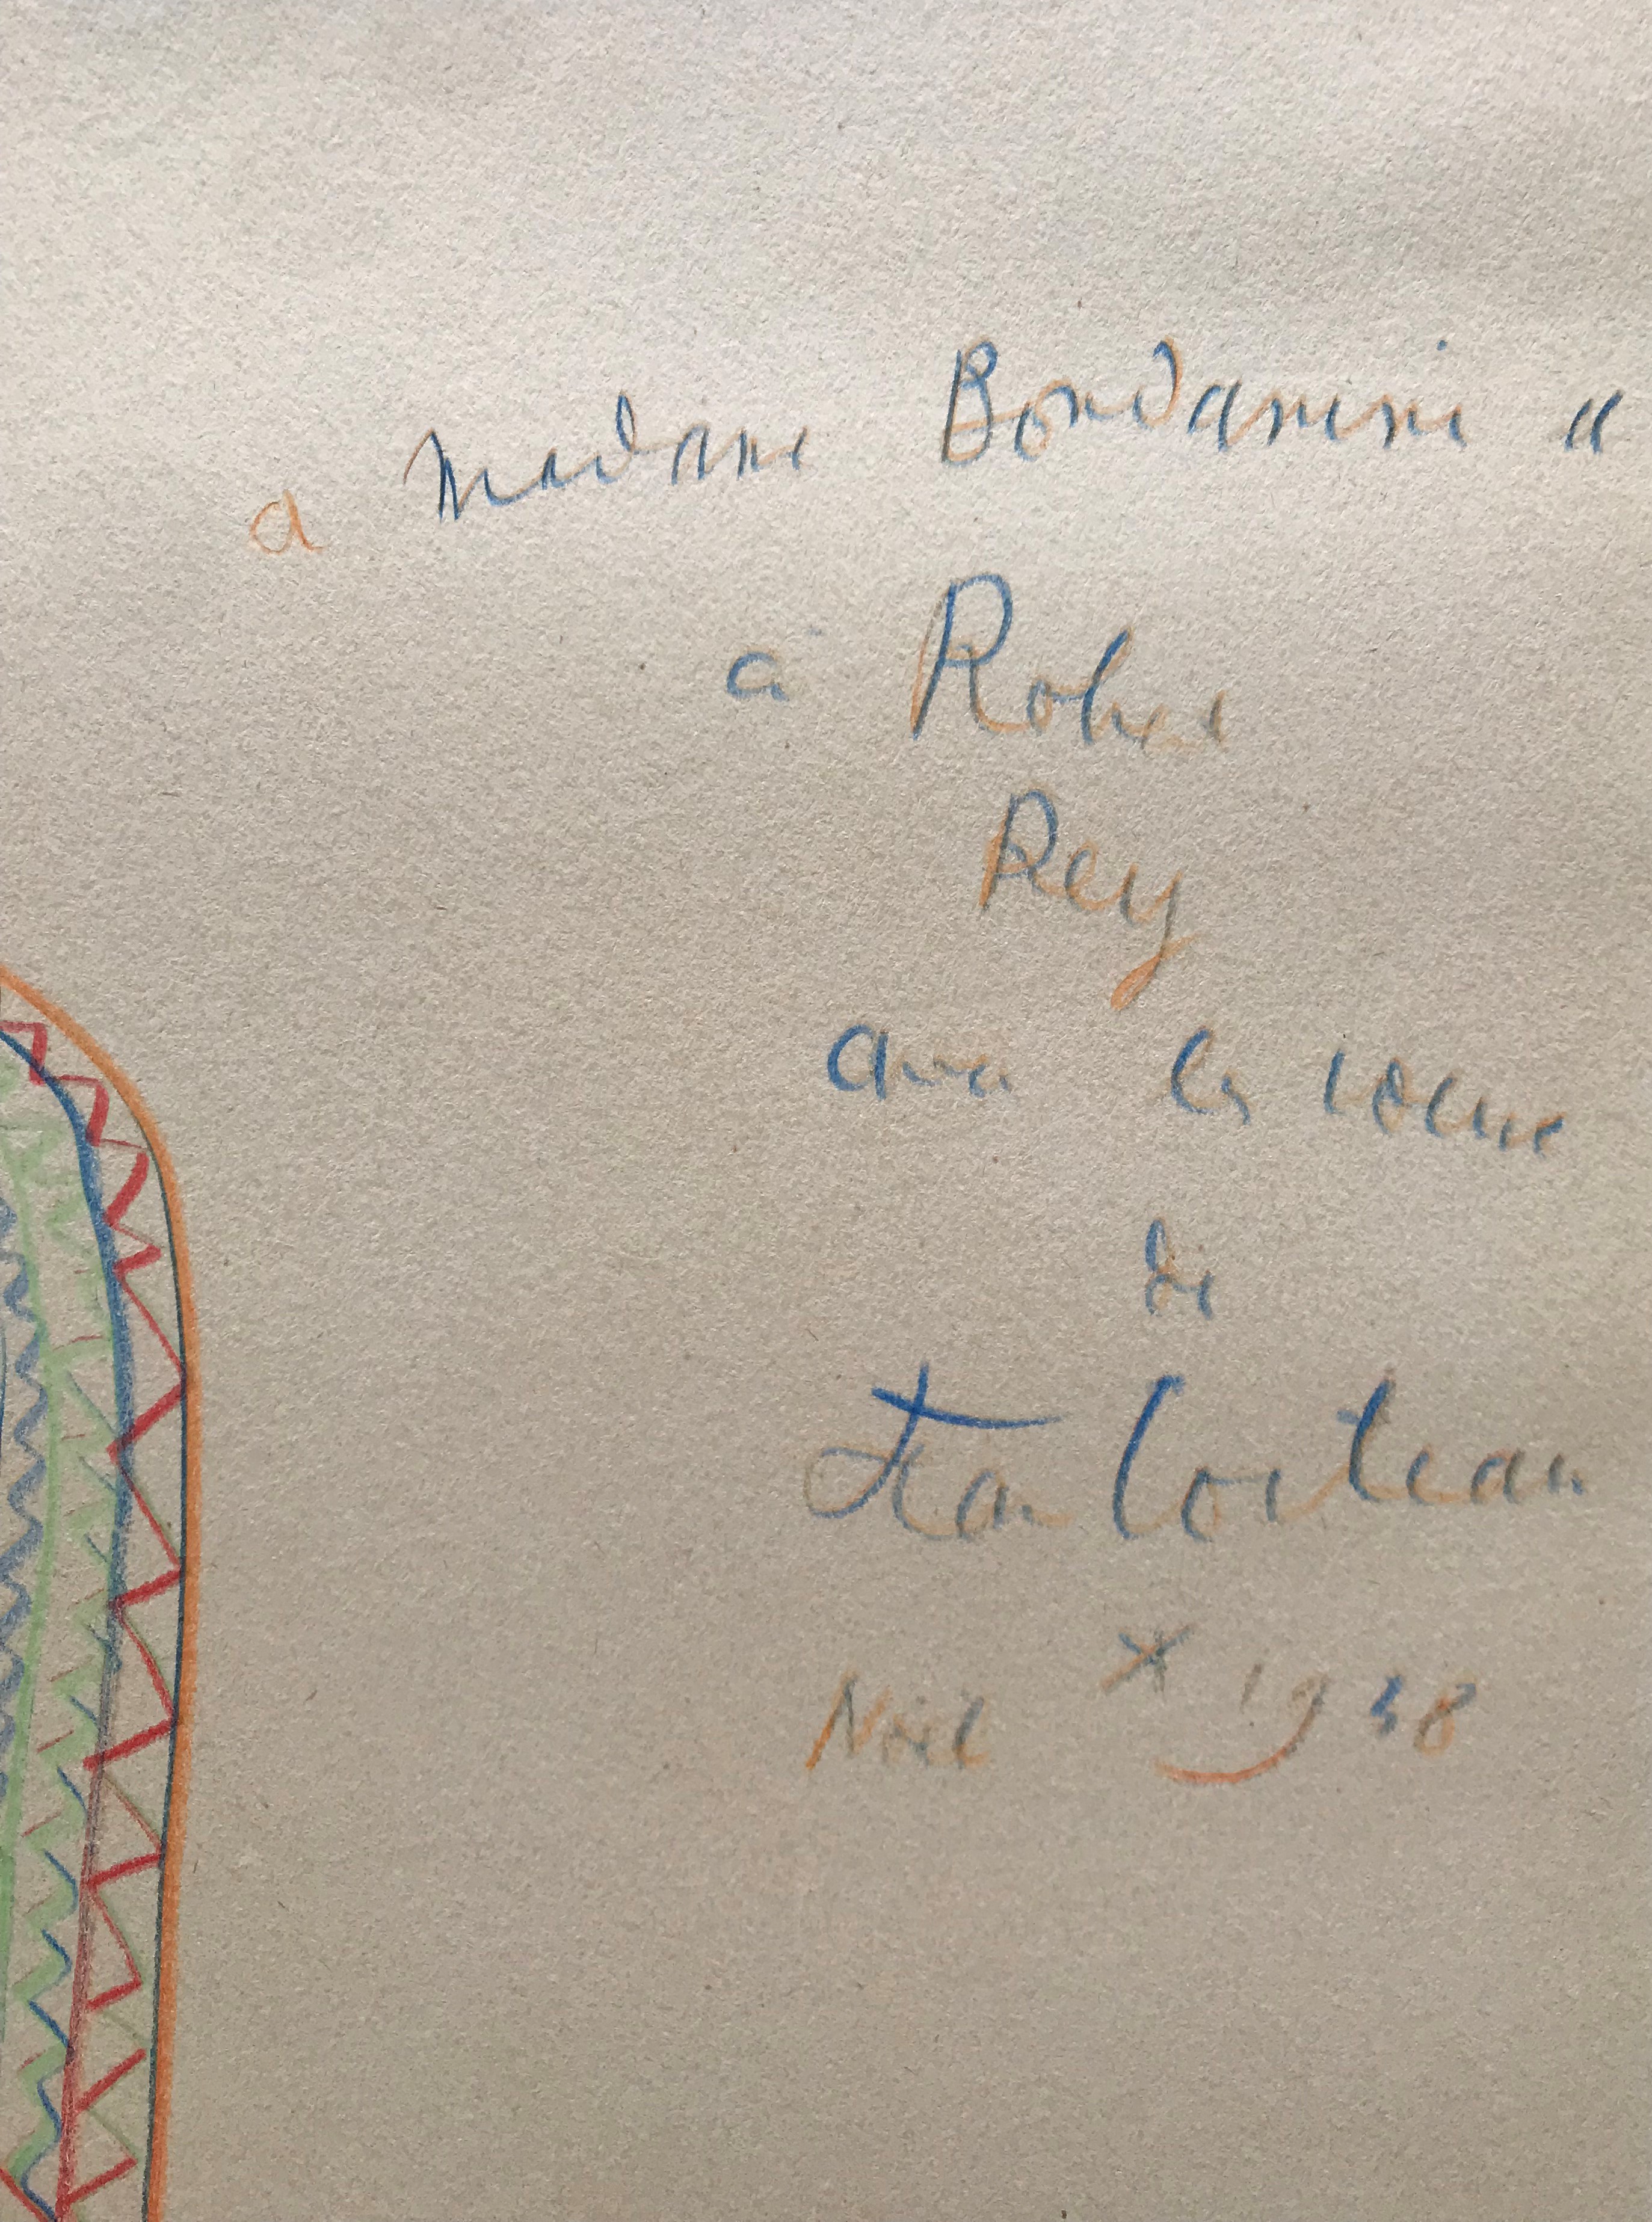 a Madame Bondanini et
à Robert
Rey
avec le coeur
de
Jean Cocteau
* 
Noël 1938